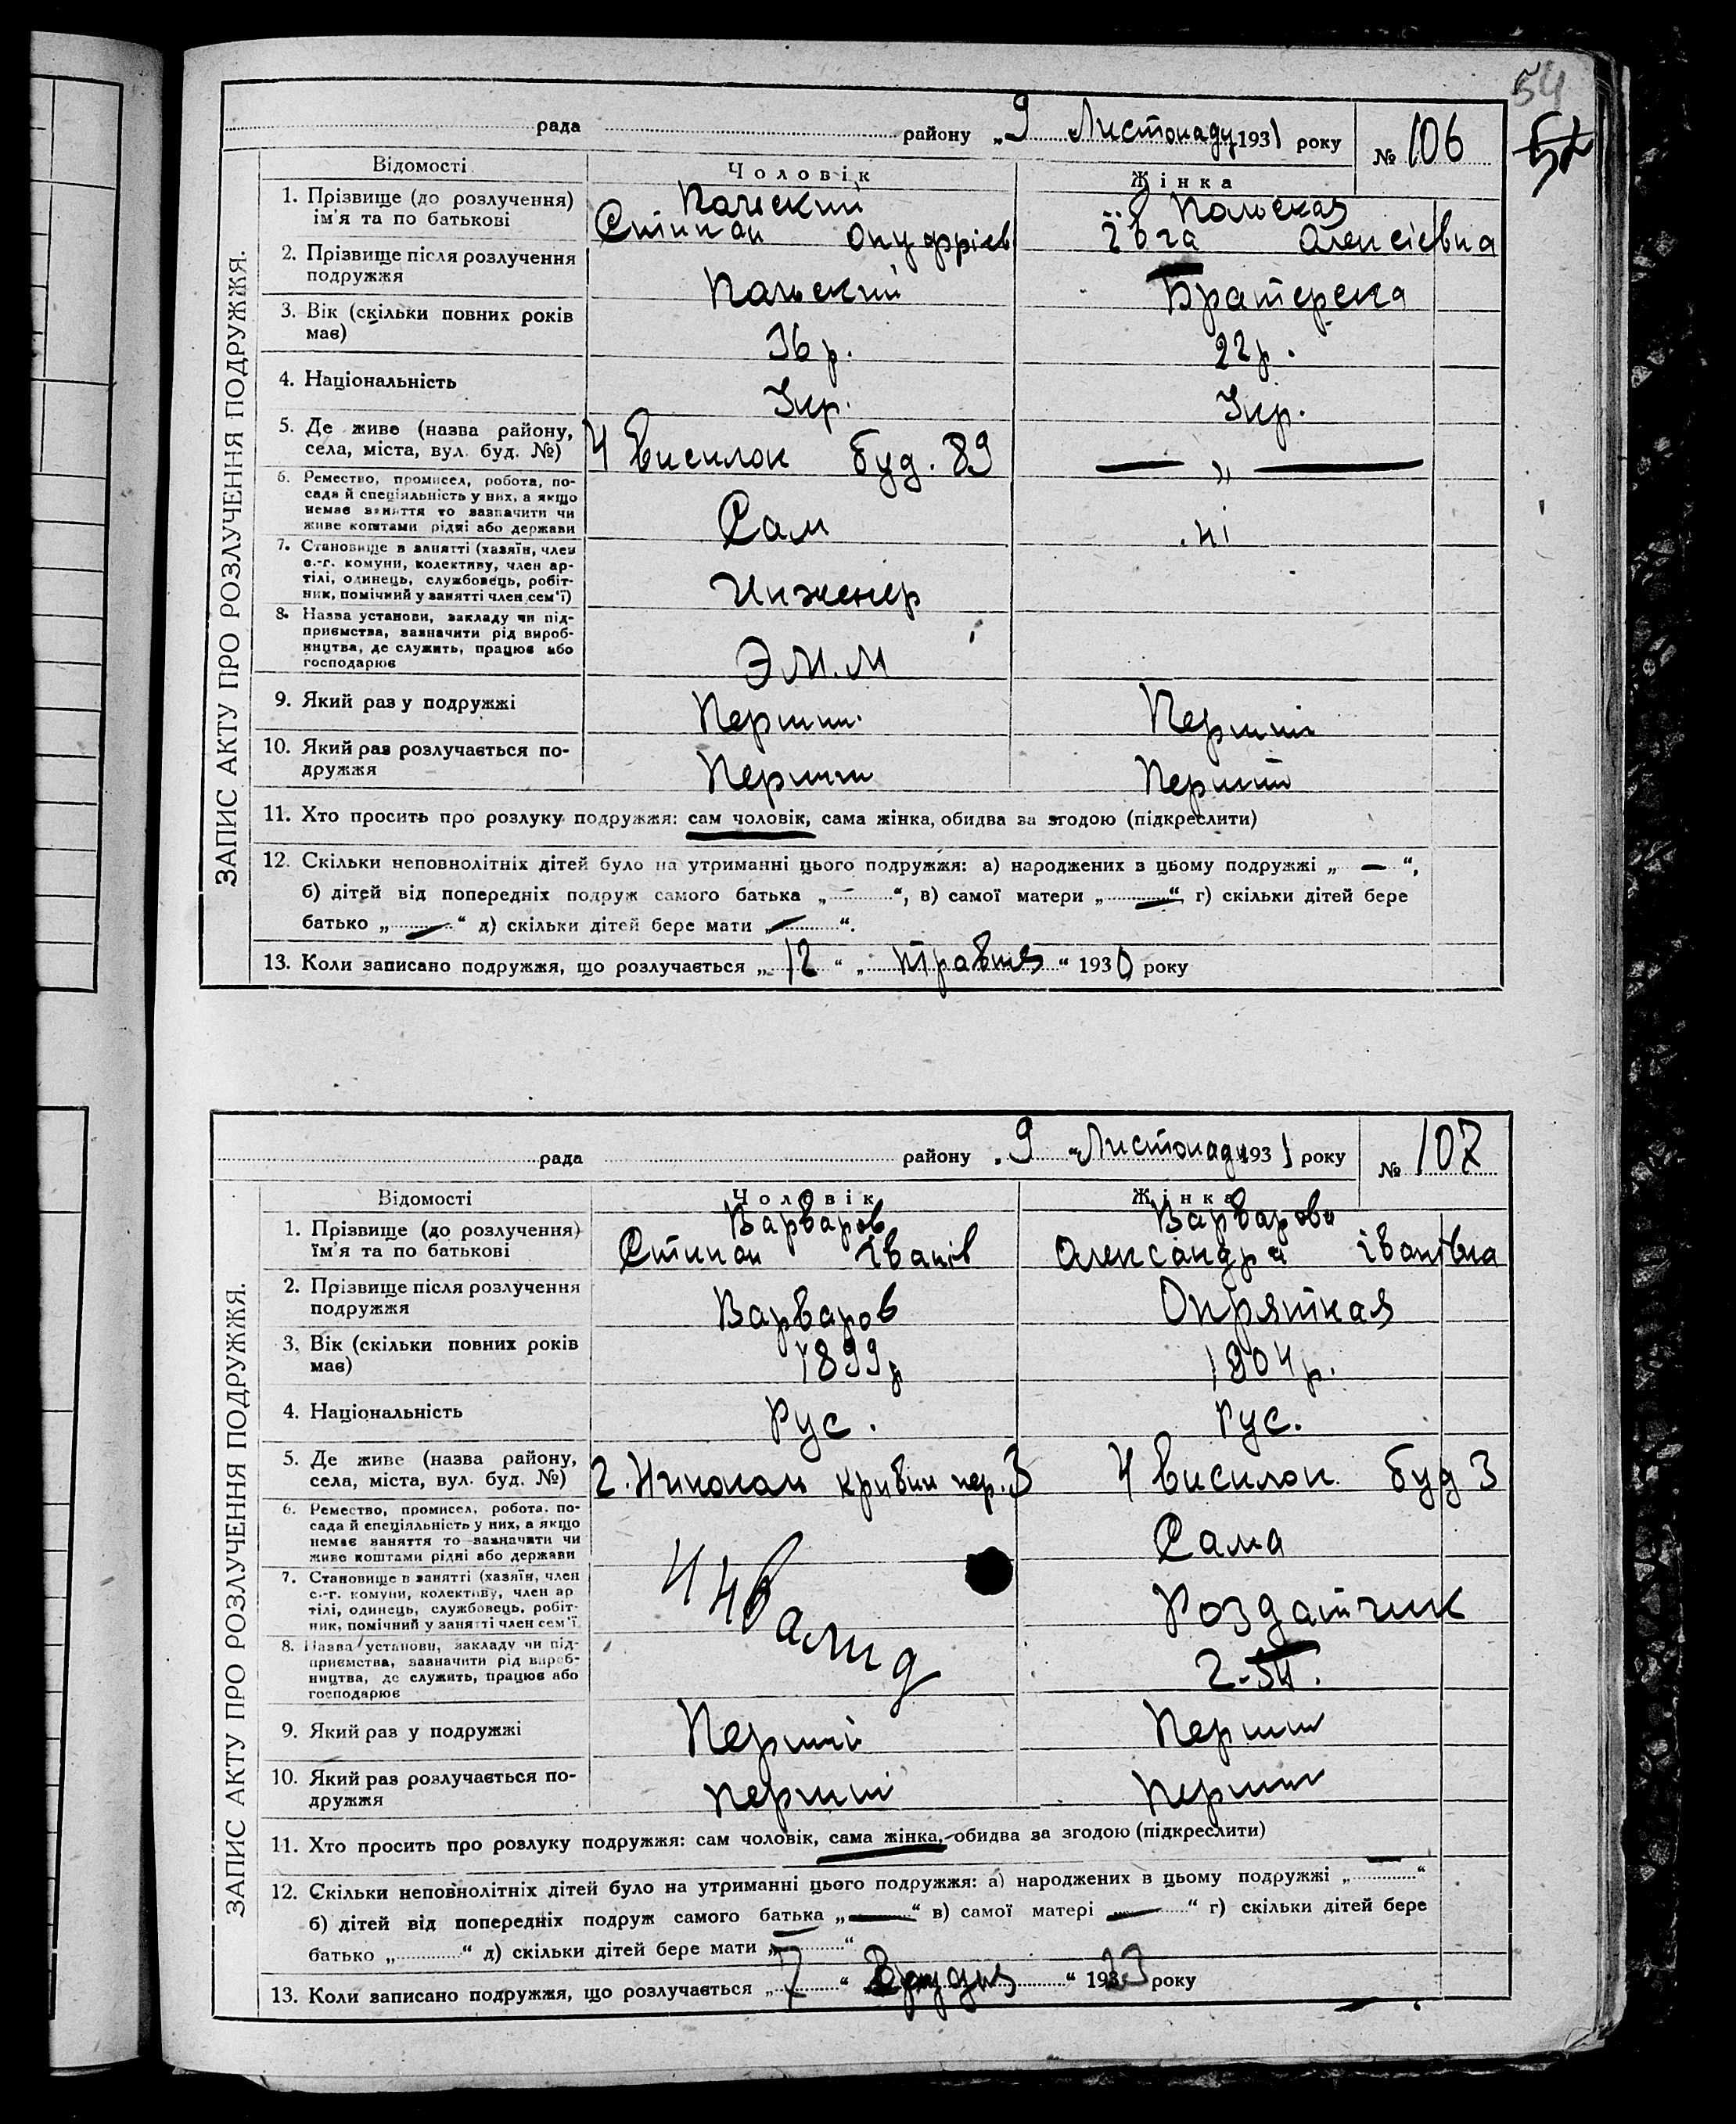 54
52
рада района „9 Листопаду 1931 року № 106
ЗАПИС АКТУ ПРО РОЗЛУЧЕННЯ ПОДРУЖЖЯ.
Відомості Чоловік Жінка
1. Прізвище (до розлучення) Польский Польская
ім'я та по батькові Стипан Онуфріев Ївга Алексієвна
2. Прізвище після розлучення
подружжя Польский Братерска
3. Вік (скільки повних років
має) 36 р. 22 р.
4. Національність Укр. Укр.
5. Де живе (назва району,
села, міста, вул. буд. №) 4 висилок буд. 89 — „ —
6. Ремество, промисел, робота, по-
сада й спеціяльність у них, а якщо
немає заняття то зазначити чи
живе коштами рідні або держави Сам ні
7. Становище в занятті (хазяїн, член
с.-г. комуни, колективу, член ар-
тілі, одинець, службовець, робіт-
ник, помічний у занятті член сем'ї) Инженер
8. Назва установи, закладу чи під-
приємства, зазначити рід вироб-
ництва, де служить, працює або
господарює Э М. М
9. Який раз у подружжі Перший Перший
10. Який раз розлучається по-
дружжя Перший Перший
11. Хто просить про розлуку подружжя: сам чоловік, сама жінка, обидва за згодою (підкреслити)
12. Скільки неповнолітніх дітей було на утриманні цього подружжя: а) народжених в цьому подружжі „ — “,
б) дітей від попередніх подруж самого батька „ “, в) самої матери „ — “, г) скільки дітей бере
батько „ — “ д) скільки дітей бере мати „ — “.
13. Коли записано подружжя, що розлучається „ 12 “ „ травня “ 1930 року
рада району „9 „Листопаду 1931 року № 107
ЗАПИС АКТУ ПРО РОЗЛУЧЕННЯ ПОДРУЖЖЯ.
Відомості Чоловік Жінка
1. Прізвище (до розлучення) Варваров Варварова
ім'я та по батькові Стипан Іванів Александра іванівна
2. Прізвище після розлучення
подружжя Варваров Опрятная
3. Вік (скільки повних років
має) 1899р 1904р.
4. Національність Рус. Рус.
5. Де живе (назва району,
села, міста, вул. буд. №) кривий пер. 3 4 висилок буд 3
6. Ремество, промисел, робота, по-
сада й спеціяльність у них, а якщо
немає заняття то зазначити чи
живе коштами рідні або держави Инвалид Сама
7. Становище в занятті (хазяїн, член
с.-г. комуни, колективу, член ар
тілі, одинець, службовець, робіт-
ник, помічний у занятті член сем'ї Роздатчик
8. Назва установи, закладу чи під-
приємства, зазначити рід вироб-
ництва, де служить, працює або
господарює
9. Який раз у подружжі Перший Перший
10. Який раз розлучається по-
дружжя перший перший
11. Хто просить про розлуку подружжя: сам чоловік, сама жінка, обидва за згодою (підкреслити)
12. Скільки неповнолітніх дітей було на утриманні цього подружжя: а) народжених в цьому подружжі „ — “
б) дітей від попередніх подруж самого батька „ — “ в) самої матері „ — “ г) скільки дітей бере
батько „ “ д) скільки дітей бере мати „ “
13. Коли записано подружжя, що розлучається „ 7 “ „ Грудня “ року